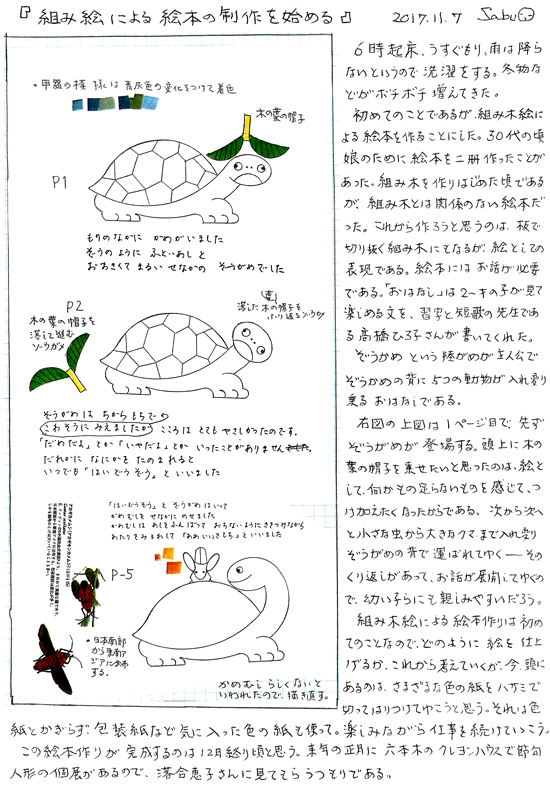 『組み絵による絵本の制作を始める』 2017.11.7 Sabu
・甲羅の模様は青灰色の変化をつけて着色
木の葉の帽子
P1
もりのなかに かめがいました
ぞうのように ふといあしと
おおきくて まるい せなかの ぞうがめでした
P2
木の葉の帽子を
落して進む
ゾウガメ
落した木の帽子を
ふり返るゾウガメ
ぞうがめは ちからもちで
こわそうにみえましたが こころは とても やさしかったのです。
「だめだよ」とか「いやだよ」とか いったことがありません
だれかに なにかを たのまれると
いつでも「はい どうぞう」といいました
「はいどうぞう」と ぞうがめはいって
かめむしを せなかに のせました
かめむしは あしをふんばって おちないようにきをつけながら
P-5
・日本南部
から東南ア
ジアに分布
する。
かめむしらしくないと
いわれたので、描き直す。
6時起床、うすぐもり、雨は降ら
ないというので洗濯をする。冬物な
どがボチボチ増えてきた。
初めてのことであるが、組み木絵に
よる絵本を作ることにした。30代の頃
娘のために絵本を二冊作ったことが
あった。組み木を作りはじめた頃である
が、組み木とは関係のない絵本だ
った。これから作ろうと思うのは、板で
切り抜く組み木にもなるが、絵としての
表現である。絵本にはお話が必要
である。「おはなし」は2〜4の子が見て
楽しめる文を、習字と短歌の先生であ
る高橋ひろ子さんが書いてくれた。
ぞうがめという陸がめが主人公で
ぞうかめの背に5つの動物が入れ替り
乗るおはなしである。
右図の上図は1ページ目で、先ず
ぞうがめが登場する。頭上に木の
葉の帽子を乗せたいと思ったのは、絵と
して、何かもの足らないものを感じて、つ
け加えたくなったからである。次から次へ
と小さな虫から大きなクマまで入れ替り
ぞうがめの背で運ばれてゆく──その
くり返しがあって、お話が展開してゆくの
で、幼い子らにも親しみやすいだろう。
組み木絵による絵本作りは初め
てのことなので、どのように絵を仕上
げるか、これから考えていくが、今、頭に
あるのは、さまざまな色の紙をハサミで
切ってはりつけてゆこうと思う。それは色
紙とかぎらず、包装紙など気に入った色の紙を使って。楽しみながら仕事を続けていこう。
この絵本作りが完成するのは12月終り頃と思う。来年の正月に六本木のクレヨンハウスで節句
人形の個展があるので、落合恵子さんに見てもらうつもりである。